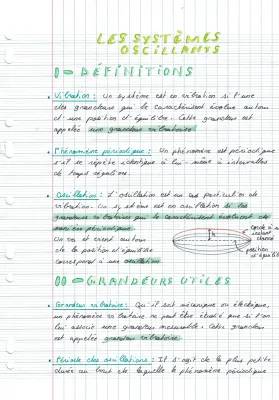 LES SYSTÈMES
OSCILLANTS
I - DÉFINITIONS
• Vibration : Un système est en vibration si l'une
des grandeurs qui le caractérisent évolue autour
d'une position d'équilibre. Cette grandeur est
appelée une grandeur vibratoire.
• Phénomène périodique : Un phénomène est périodique
s'il se répète identique à lui-même à intervalles
de temps réguliers.
• Oscillation : L'oscillation est un cas particulier de
vibration. Un système est en oscillation si les
grandeurs vibratoires qui le caractérisent évoluent de
manière périodique.
Un va et vient autour
de la position d'équilibre
correspond à une oscillation
corde à
instant
donné
position
d'équili
h
II - GRANDEURS UTILES
• Grandeur vibratoire : Qu'il soit mécanique ou électrique,
un phénomène vibratoire ne peut être étudié que si l'on
lui associe une grandeur mesurable. Cette grandeur
est appelée grandeur vibratoire.
• Période des oscillations : Il s'agit de la plus petite
durée au bout de laquelle le phénomène périodique